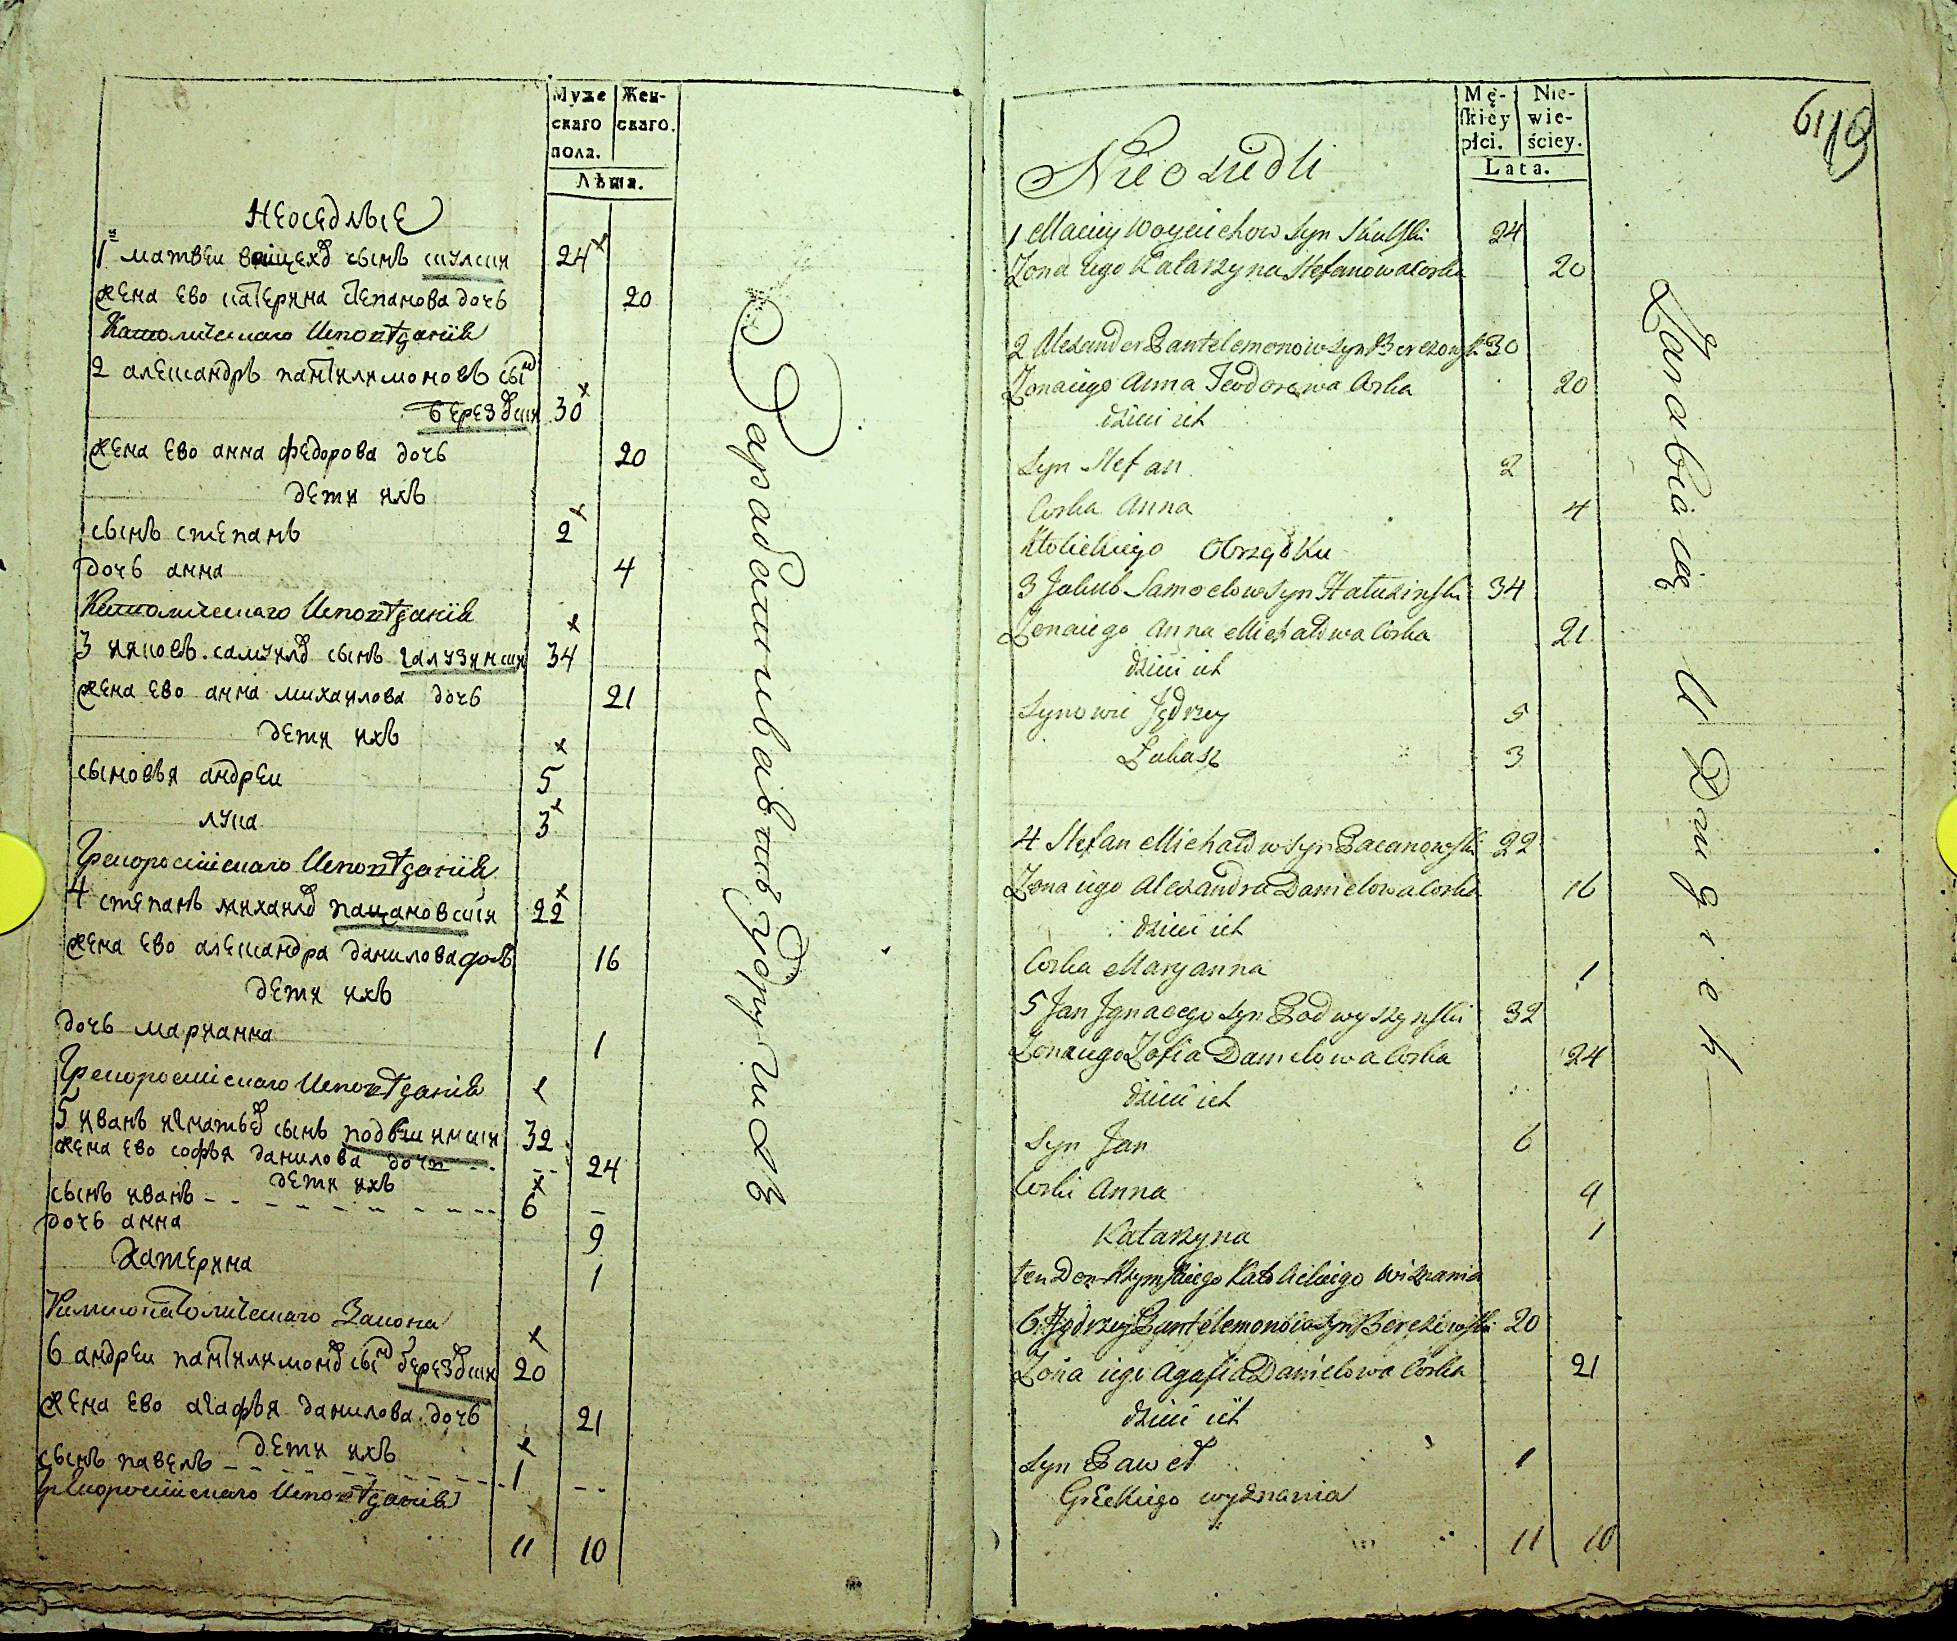 Муже
скаго
пола.
Жен-
скаго.
Лѣта.
Неоседлые
1й матвеи воицехов сынъ скулски 24
жена ево катерина степанова дочь 20
Католическаго исповѣданія
2 александръ пантилимоновъ сынъ
березовски 30
жена ево анна федорова дочь 20
дети ихъ
сынъ степанъ 2
дочь анна 4
Католическаго исповѣданія
3 яковъ самуилов сынъ галузински 34
жена ево анна михаилова дочь 21
дети ихъ
сыновья андреи 5
лука 3
Грекоросийскаго исповѣданія
4 степанъ михаилов пацановскiи 22
жена ево александра данилова дочь 16
дети ихъ
дочь марианна 1
Грекоросийскаго исповѣданія
5 иванъ игнатьев сынъ подвышински 32
жена ево софья данилова дочь 24
дети ихъ
сынъ иванъ 6
дочь анна 9
катерина 1
Римскокатолическаго Закона
6 андреи пантилимонов сынъ березовски 20
жена ево агафья данилова дочь 21
дети ихъ
сынъ павелъ 1
Грекоросийскаго исповѣданія
11 10
Зарабатывающiе у другихъ
Mę-
skiey
płci.
Nie-
wie-
ściey.
Lata.
61
19
Nieosiedli
1 Maciey Woyciechow Syn Skulski 24
Zona iego Katarzyna Stefanowa Corka 20
2 Alexander Pantelemonow syn Berezowsk 30
Zona iego Anna Teodorowa Corka 20
dzieci ich
Syn Stefan 2
Corka Anna 4
Ktolickiego Obrządku
3 Jakub Samoelow Syn Hałuzinski 34
Zona iego Anna Michałowa Corka 21
dzieci ich
Synowie Jędrzey 5
Łukasz 3
4 Stefan Michałow syn Pacanowski 22
Zona iego Alexandra Danielowa Corka 16
dzieci ich
Corka Maryanna 1
5 Jan Jgnacego syn Podwyszynski 32
Zona iego Zofia Danielowa Corka 24
dzieci ich
Syn Jan 6
Corki Anna 9
Katarzyna 1
ten Dom Rzymskiego Katolickiego wiznania
6 Jędrzey Pantelemonow syn Berezowski 20
Zona iego Agafia Danielowa Corka 21
dzieci ich
Syn Paweł 1
Greckiego wyznania
11 10
Zarabiaiącę U Drugich